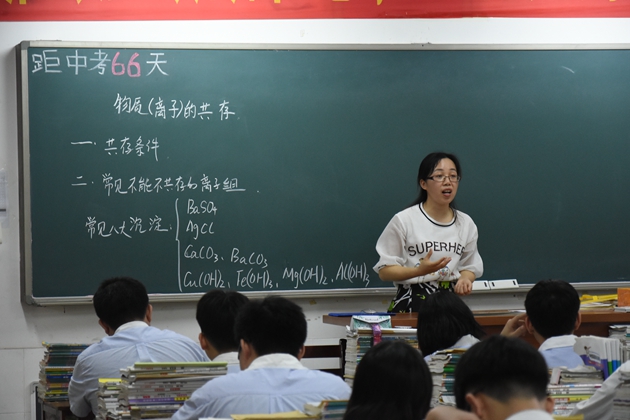 距中考66天
物质(离子)的共存
一.共存条件
二.常见不能不共存的离子组.
常见八大沉淀.
BaSO4
AgCl
CaCO3、BaCO3
Cu(OH)2、Fe(OH)3、Mg(OH)2、Al(OH)3
SUPERHE